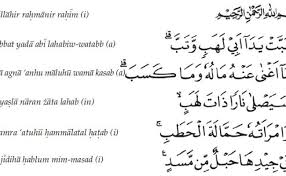 illāhir raḥmānir raḥīm (i)
بِسْمِ اللّٰهِ الرَّحْمٰنِ الرَّحِيْمِ
bbat yadā abī lahabiw-watabb (a)
بَّتْ يَدَآ اَبِيْ لَهَبٍ وَّتَبَّ
ā agnā ‘anhu māluhū wamā kasab (a)
مَآ اَغْنٰى عَنْهُ مَالُهٗ وَمَا كَسَبَ
yaṣlā nāran żāta lahab (i)
سَيَصْلٰى نَارًا ذَاتَ لَهَبٍ
amra ’atuhū ḥammālatal ḥaṭab (i)
امْرَاَتُهٗ حَمَّالَةَ الْحَطَبِ
jīdihā ḥablum mim-masad (i)
يْ جِيْدِهَا حَبْلٌ مِّنْ مَّسَدٍ